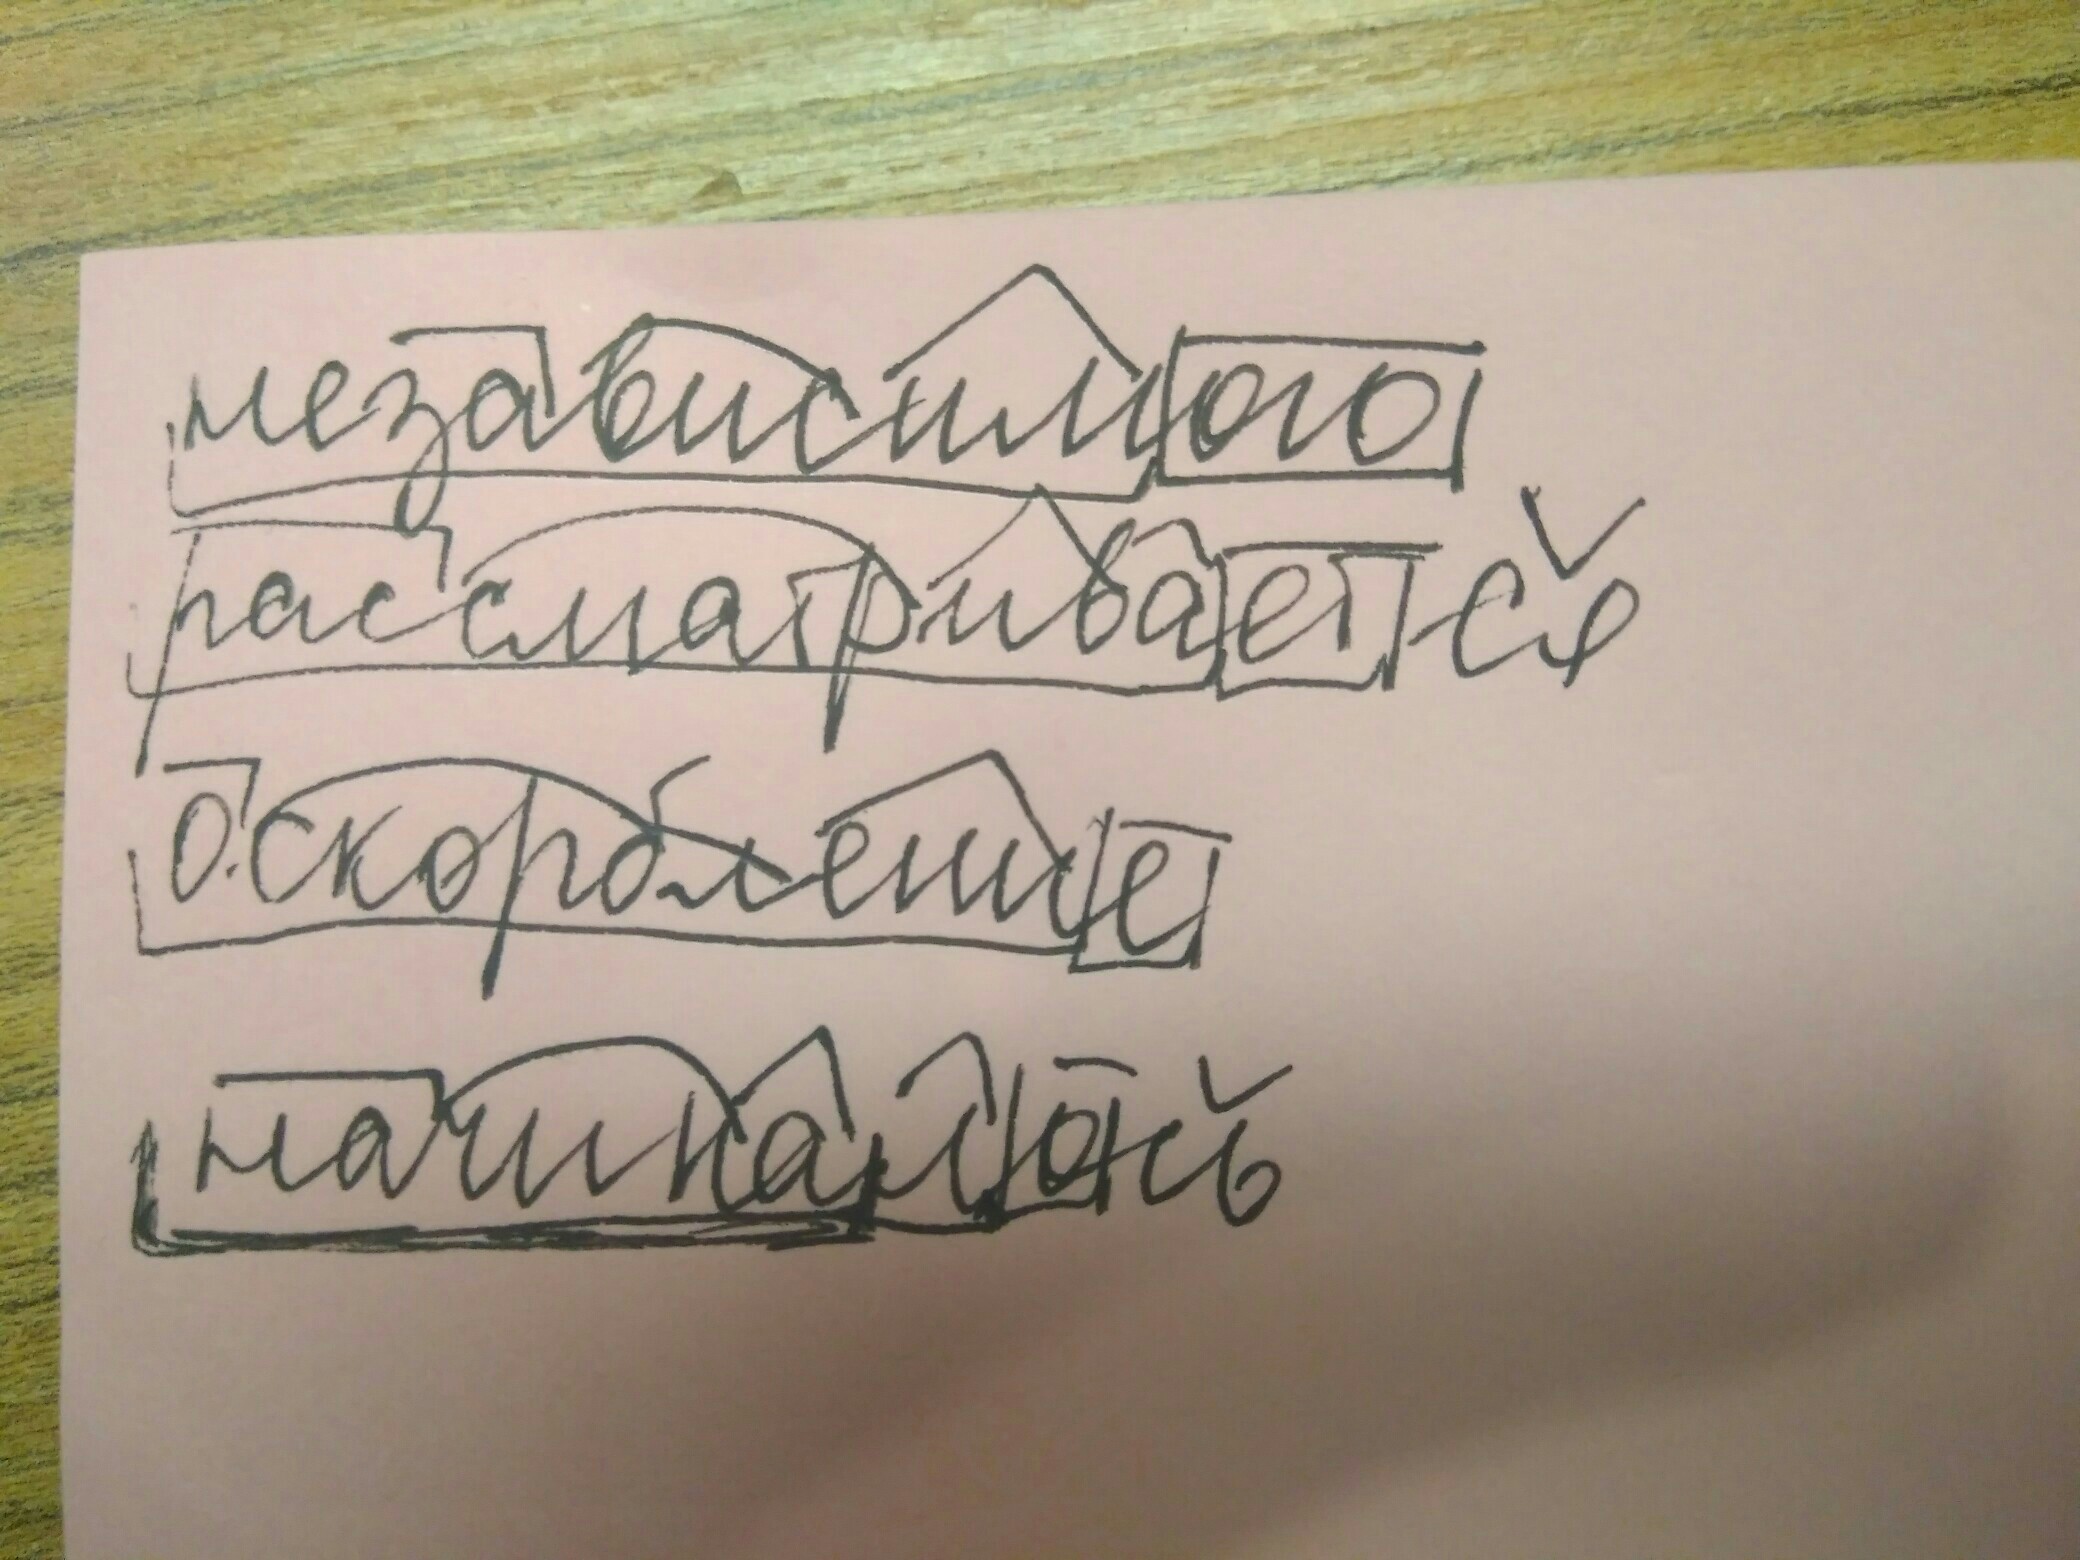 независимого
рассматривается
оскорбление
начиналось